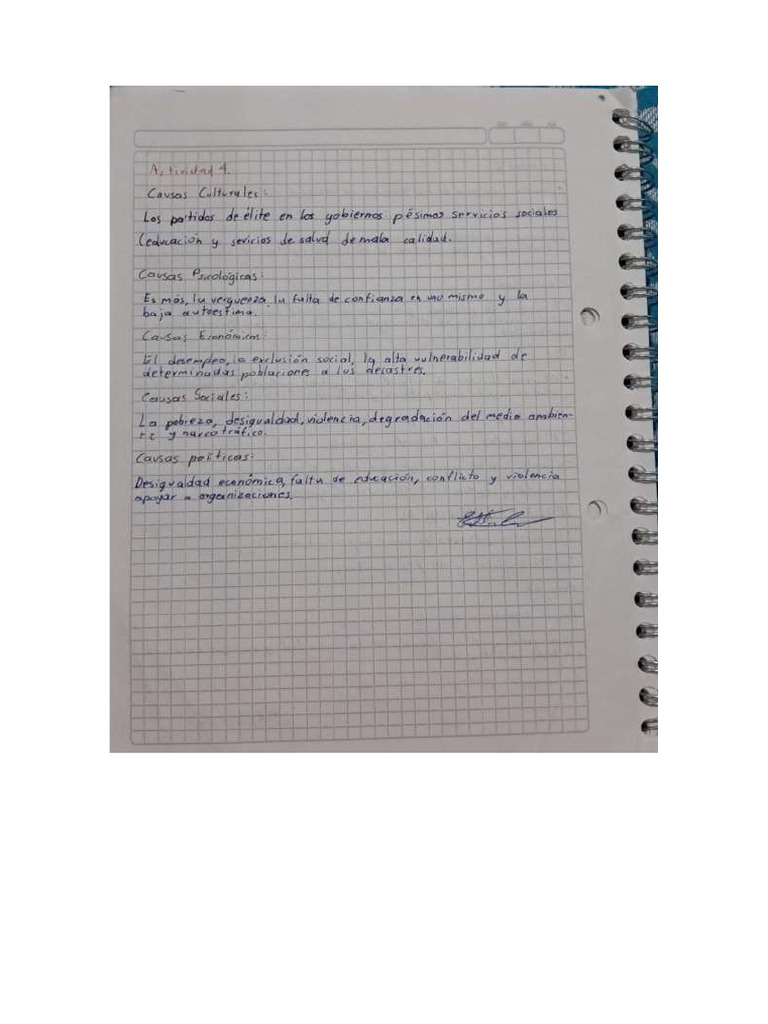 Actividad 4.
Causas Culturales:
Los partidos de élite en los gobiernos pésimos servicios sociales
(educación y sevicios de salud de mala calidad.
Causas Psicológicas:
Es más, la verguenza, la falta de confianza en uno mismo y la
baja autoestima.
Causas Económicas:
El desempleo, la exclusión social, la alta vulnerabilidad de
determinadas poblaciones a los desastres.
Causas Sociales:
La pobreza, desigualdad, violencia, degradación del medio ambien-
te y narcotráfico.
Causas políticas:
Desigualdad económica, falta de educación, conflicto y violencia
apoyar a organizaciones.